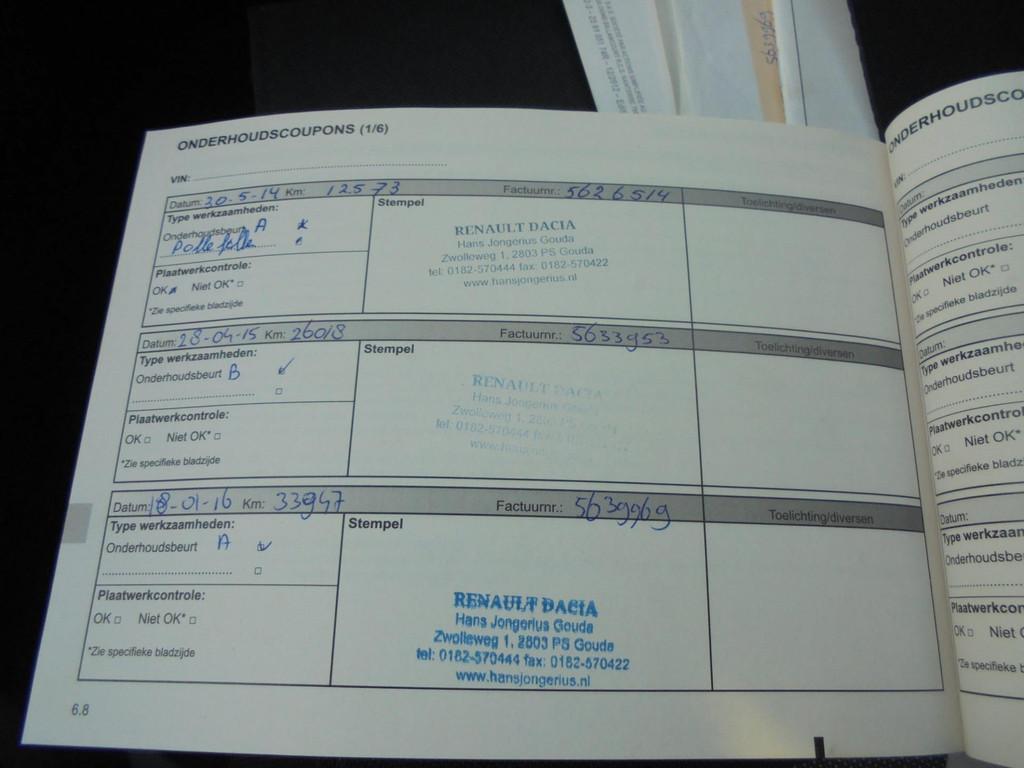 5639969
ONDERHOUDSCOUPONS (1/6)
VIN:
Datum: 20-5-14 Km: 12573 Factuurnr.: 5626514 Toelichting/diversen
Type werkzaamheden:
Onderhoudsbeurt A
Stempel
RENAULT DACIA
Hans Jongerius Gouda
Zwolleweg 1, 2803 PS Gouda
tel: 0182-570444 fax: 0182-570422
www.hansjongerius.nl
Plaatwerkcontrole:
OK Niet OK* □
*Zie specifieke bladzijde
Datum: 28-04-15 Km: 26018 Factuurnr.: 5633953 Toelichting/diversen
Type werkzaamheden:
Onderhoudsbeurt B ✓
□
Stempel
RENAULT DACIA
Hans Jongerius Gouda
Zwolleweg 1, 2803
tel: 0182-570444
Plaatwerkcontrole:
OK □ Niet OK* □
*Zie specifieke bladzijde
Datum: 18-01-16 Km: 33947 Factuurnr.: 5639969 Toelichting/diversen
Type werkzaamheden:
Onderhoudsbeurt A ✓
□
Stempel
RENAULT DACIA
Hans Jongerius Gouda
Zwolleweg 1, 2803 PS Gouda
tel: 0182-570444 fax: 0182-570422
www.hansjongerius.nl
Plaatwerkcontrole:
OK □ Niet OK* □
*Zie specifieke bladzijde
6.8
ONDERHOUDSCO
VIN:
Datum:
Type werkzaamheden:
Onderhoudsbeurt
Plaatwerkcontrole:
OK □ Niet OK* □
*Zie specifieke bladz
Datum:
Type werkzaamhe
Onderhoudsbeurt
Plaatwerkcontrol
OK □ Niet OK*
*Zie specifieke bladz
Datum:
Type werkzaam
Onderhoudsbe
Plaatwerkcon
OK □ Niet
*Zie specifieke b